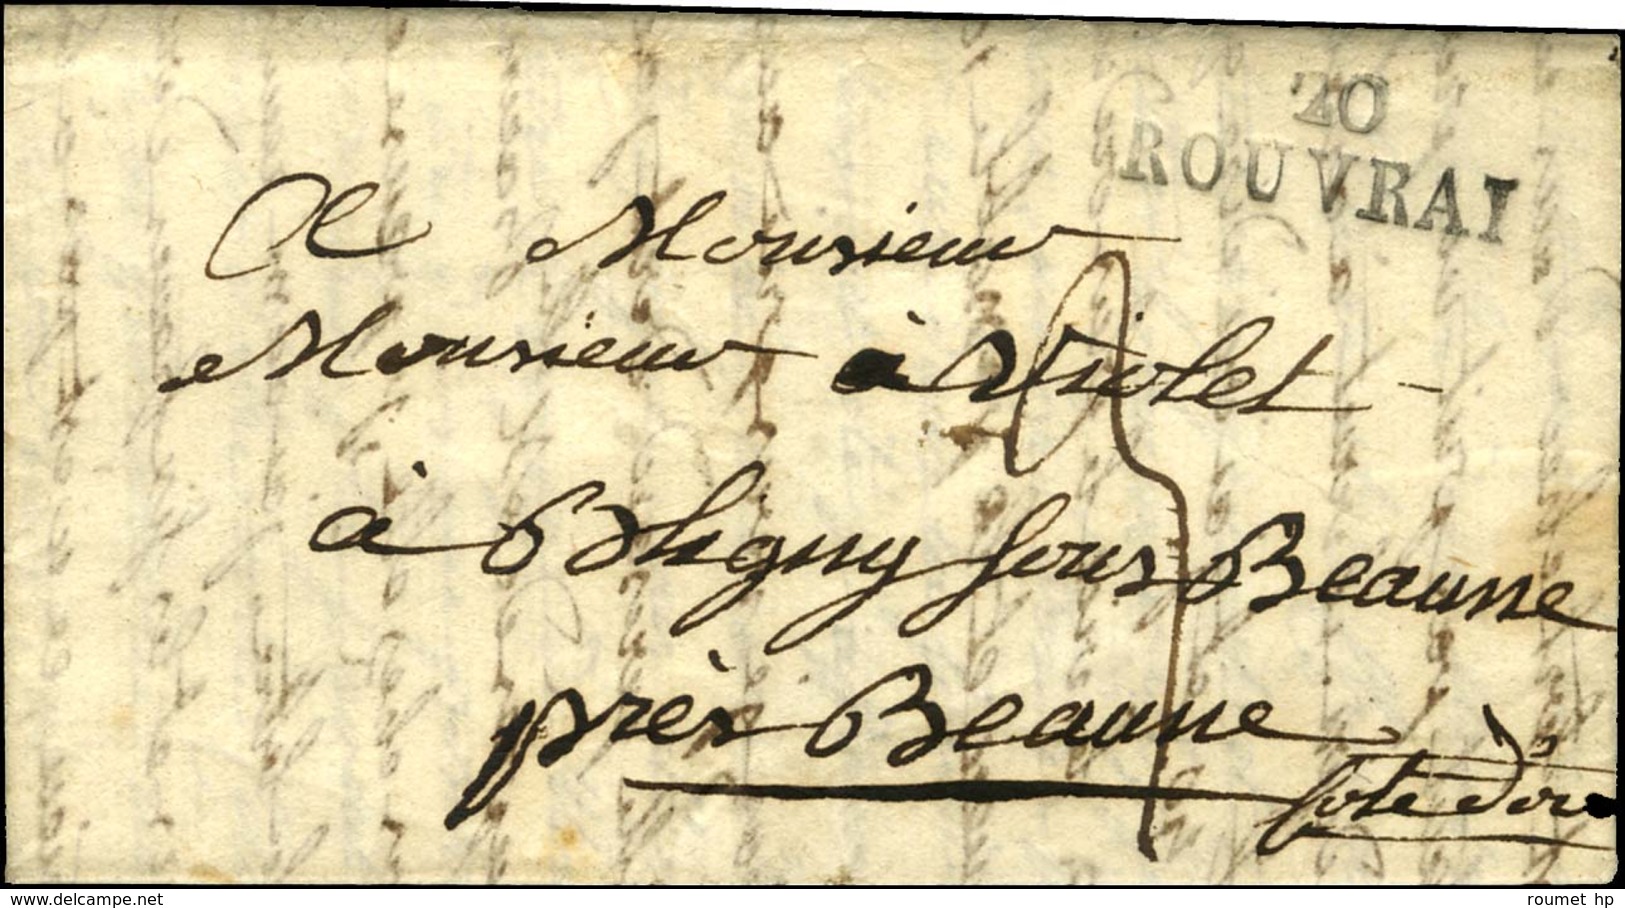 20
ROUVRAI
A Monsieur
Monsieur Violet
à Bligny sous Beaune
près Beaune
Côte d'or
delcampe.net
roumet hp